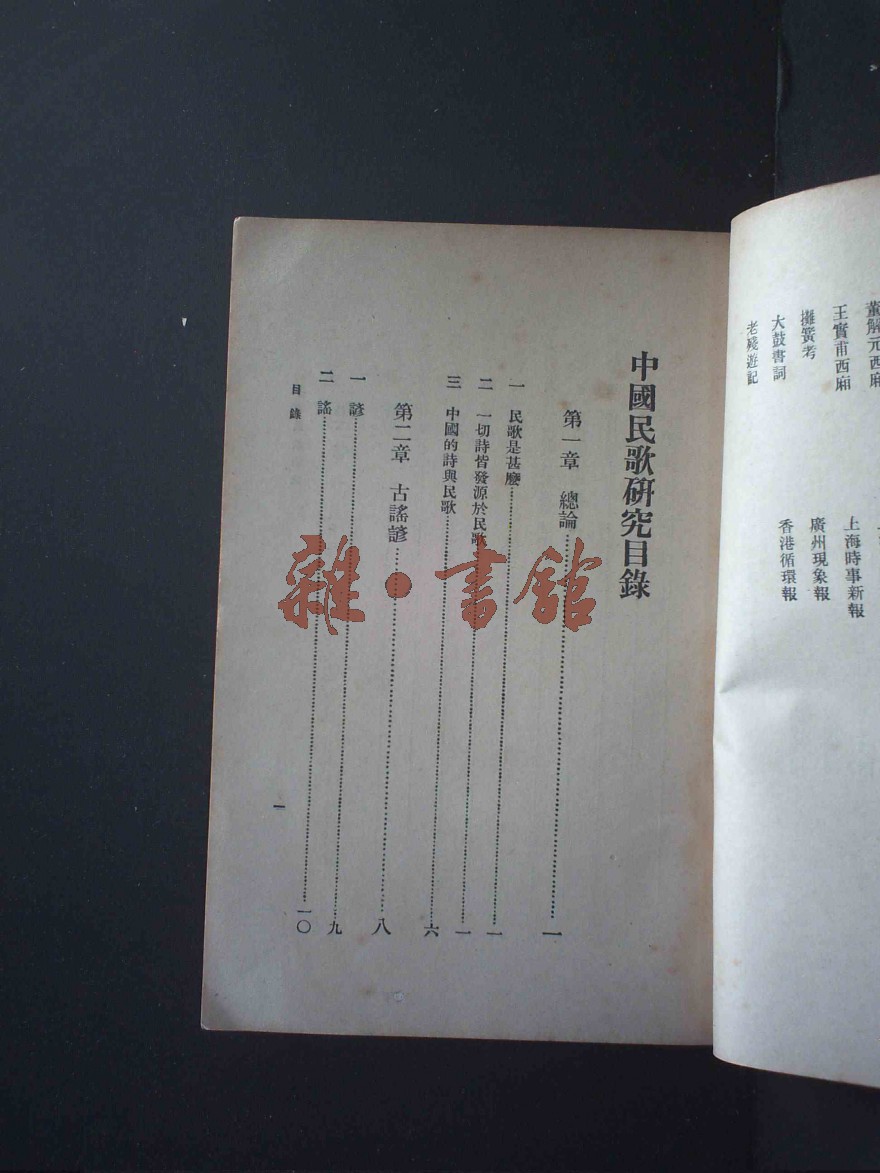 董解元西廂
王實甫西廂
攤簧考
大鼓書詞
老殘遊記
上海時事新報
廣州現象報
香港循環報
中國民歌研究目錄
第一章 總論……一
一 民歌是甚麼……一
二 一切詩皆發源於民歌……一
三 中國的詩與民歌……六
第二章 古謠諺……八
一 諺……九
二 謠……一〇
目錄
一
雜·書館